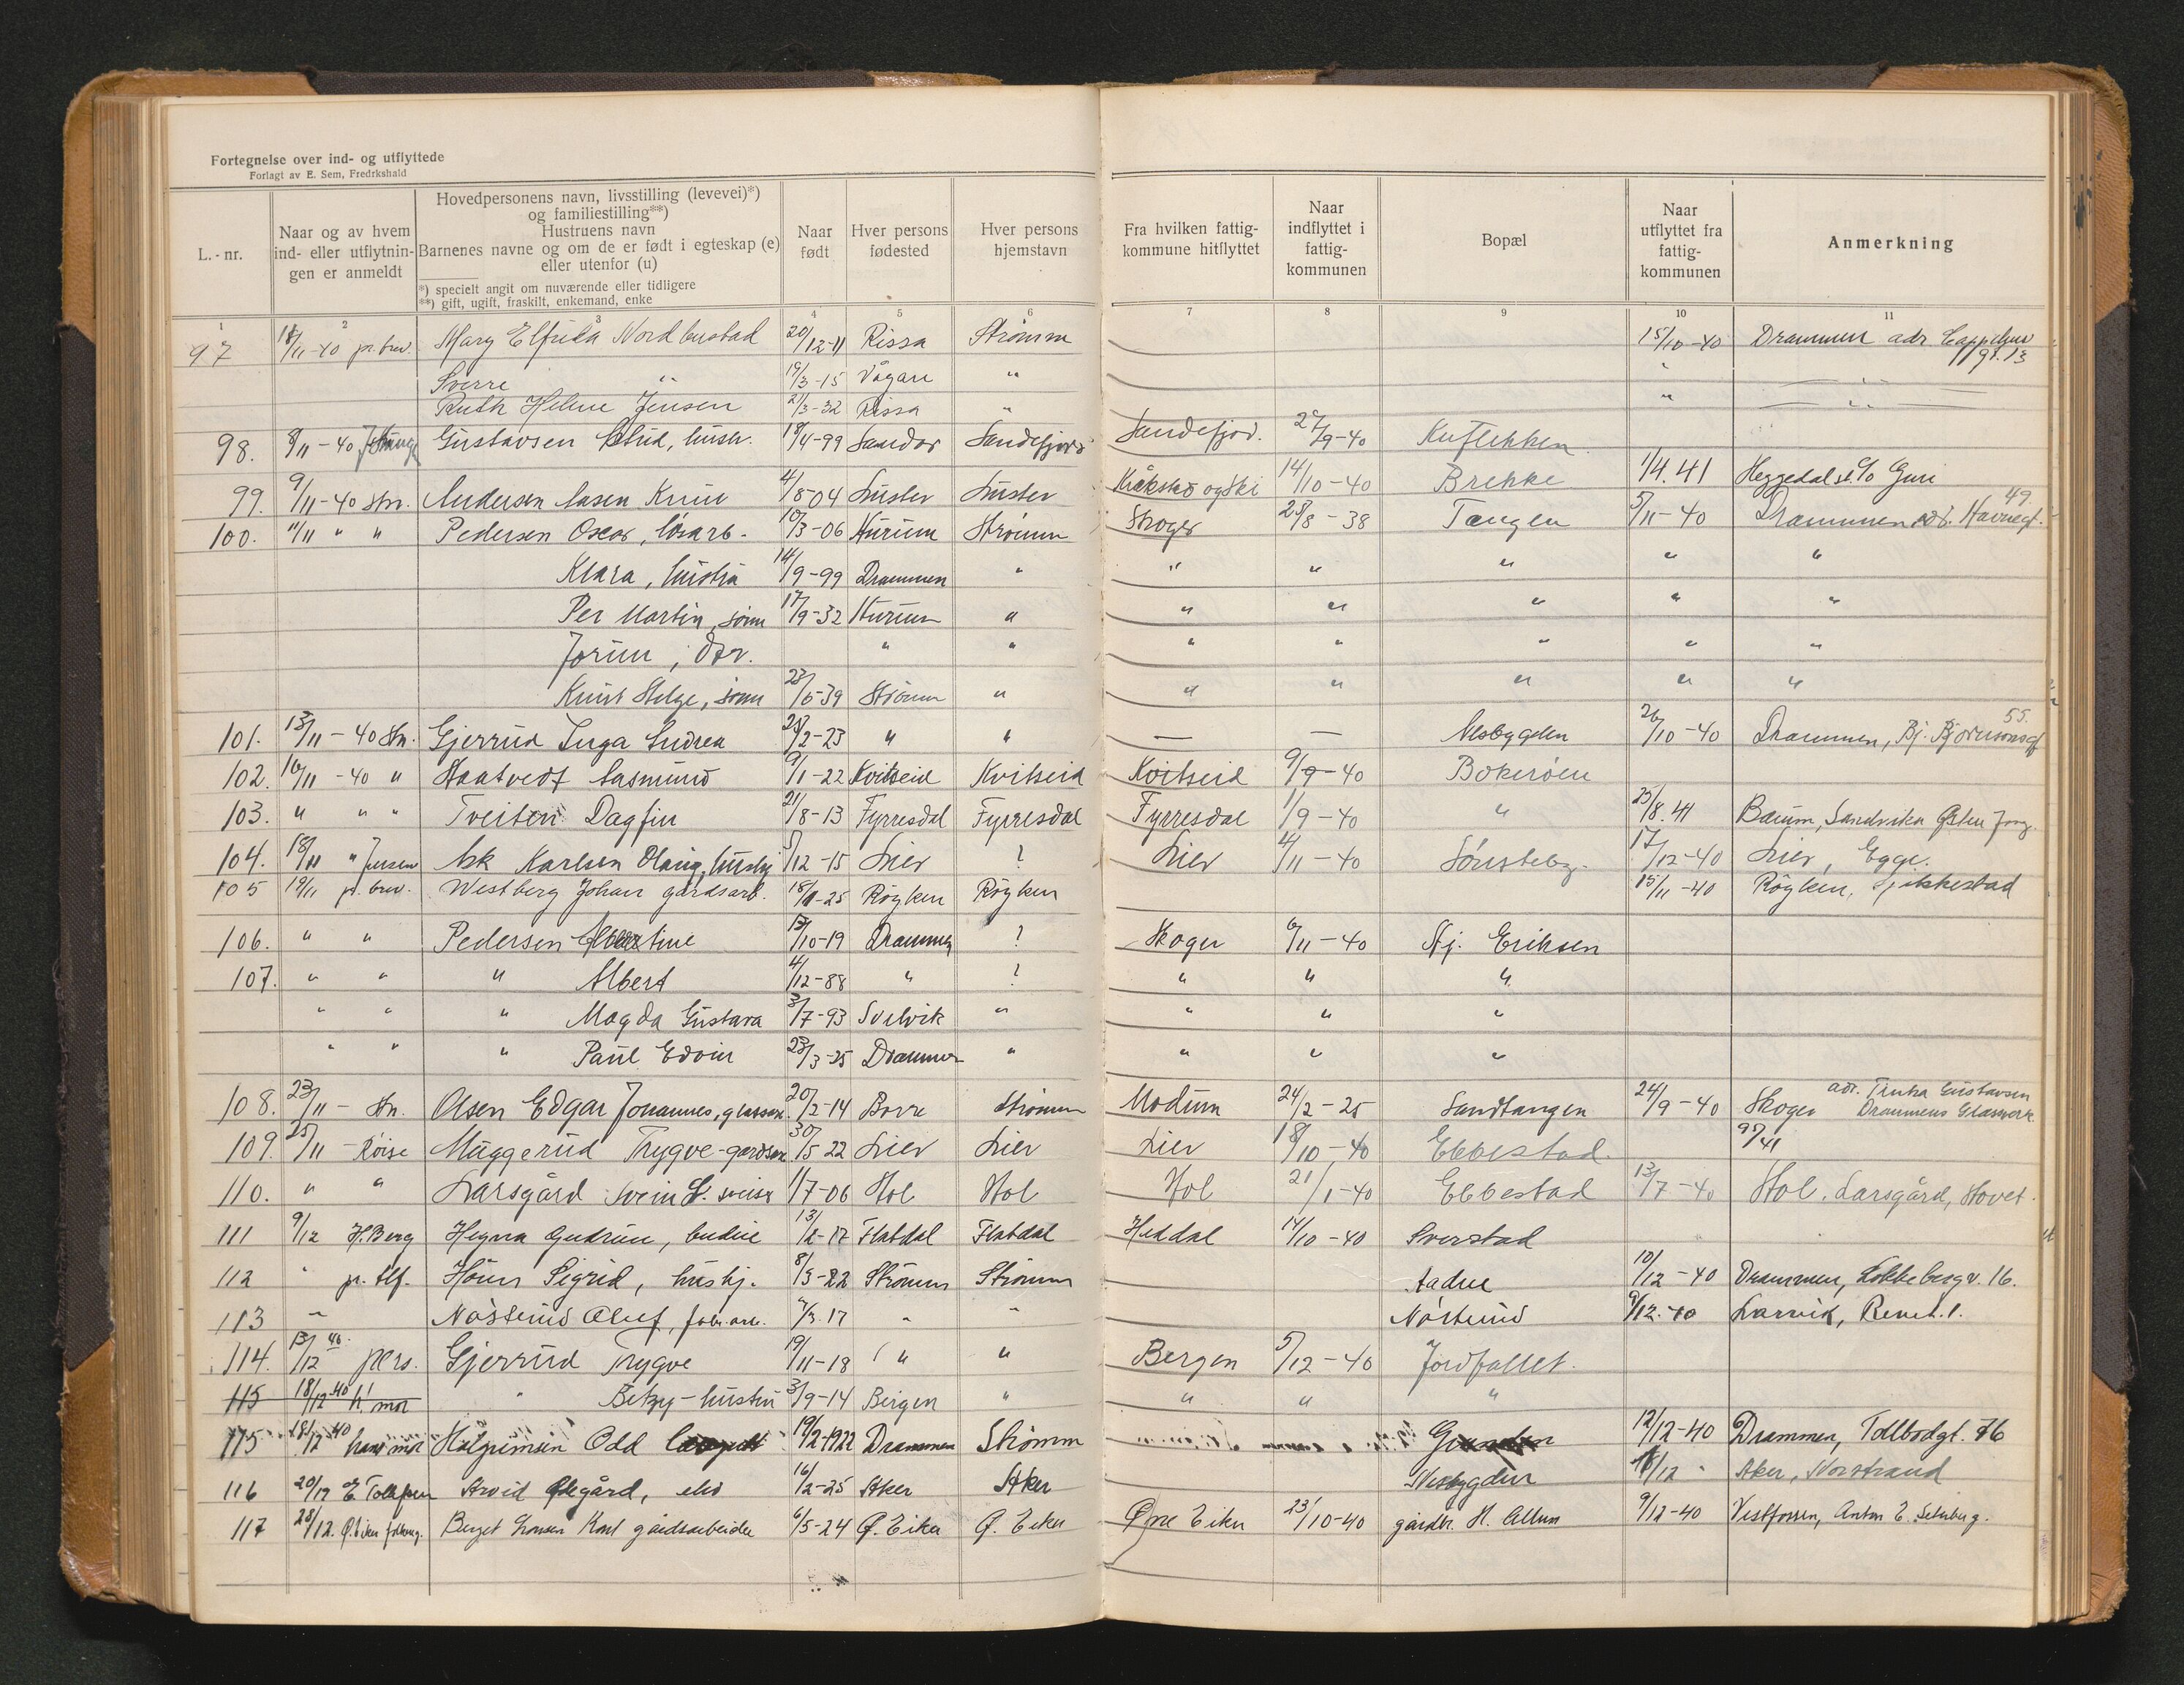 Fortegnelse over ind- og utflyttede
Forlagt av E. Sem, Fredrkshald
L.-nr.
Naar og av hvem ind- eller utflytningen er anmeldt
Hovedpersonens navn, livsstilling (levevei)*)
og familiestilling**)
Hustruens navn
Barnenes navne og om de er født i egteskap (e)
eller utenfor (u)
*) specielt angit om nuværende eller tidligere
**) gift, ugift, fraskilt, enkemand, enke
Naar født
Hver persons fødested
Hver persons hjemstavn
Fra hvilken fattigkommune hitflyttet
Naar indflyttet i fattigkommunen
Bopæl
Naar utflyttet fra fattigkommunen
Anmerkning
1 2 3 4 5 6 7 8 9 10 11
97 18/11-40 pr. brev. Mary Elfrida Nordbustad 20/12-11 Rissa Strömm 15/10-40 Drammen adr Cappelens gt. 13
Sverre " 19/3-15 Vågan " " "
Ruth Helene Jensen 21/3-32 Rissa " " "
98. 8/11-40 Gustavsen Astrid, hush. 18/4-99 Sandar Sandefjord Sandefjord. 27/9-40
99. 9/11-40 Stn. Andersen Aasen Knut 4/8-04 Luster Luster Kråkstad og Ski 14/10-40 Brekke 1/4.41 Heggedal st. c/o Juri
100. 11/11 " " Pedersen Oscar, lösarb. 10/3-06 Hurum Strömm Skoger 25/8-38 Tangen 5/11-40 Drammen adr. Havnegt. 49.
Klara, hustru 14/9-99 Drammen " " " " " "
Per Martin, sönn 17/9-32 Hurum " " " " " "
Jorun, dtr. " " " " " " "
Knut Helge, sönn 23/6-39 Strömm " " " " " "
101. 13/11-40 Stn. Gjerrud Inga Andrea 28/2-23 " " — — Nesbygden 26/10-40 Drammen, Bj. Björnsonsgt 55.
102. 16/11-40 " Haatvedt Aasmund 9/1-22 Kviteseid Kvitseid Kvitseid 9/9-40 Bokeröen
103. " " " Tveiten Dagfin 21/8-13 Fyrresdal Fyrresdal Fyrresdal 1/9-40 " 25/8.41 Bærum, Sandvika
104. 18/11 " Jensen Ask Karlsen Olaug, hushj 5/12-15 Lier ? Lier 4/11-40 Sönsteby. 17/12-40 Lier, Egge.
105 19/11 pr. brev. Westberg Johan gårdsarb. 18/1-25 Röyken Röyken 15/11-40 Röyken, Spikkestad
106. " " Pedersen Albertine 13/10-19 Drammen ? Skoger 6/11-40 Hj. Eriksen
107. " " " Albert 4/12-88 " ? " " "
" " " Magda Gustava 3/7-93 Svelvik " " " "
" " " Paul Edvin 23/3-25 Drammen " " " "
108. 23/11- Stn. Olsen Edgar Johannes, glassarb. 20/2-14 Borre Strömm Modum 24/2-25 Sandtangen 24/9-40 Skoger adr. Trinka Gustavsen Drammens Glasverk
109. 25/11- Röise Muggerud Trygve-gårdsarb. 30/5 22 Lier Lier Lier 18/10-40 Ebbestad.
110. " " Larsgård Svein L. sveiser 1/7-06 Hol Hol Hol 21/1-40 Ebbestad 13/7-40 Hol. Larsgård, Hovet.
111 9/12 H. Berg Hegna Gudrun, budeie 13/2-17 Flatdal Flatdal Heddal 14/10-40 Sverstad
112 " pr. tlf. Höun Sigrid, hushj. 8/3-22 Strömm Strömm Aadne 10/12-40 Drammen, Lökkebergv. 16.
113 " Nöstrud Oluf, fabr.arb. 7/3.17 " " Nöstrud 9/12.40 Larvik,
114. 13/12 40. pers. Gjerrud Trygve 19/11-18 " " Bergen 5/12-40 Jordfallet.
115 18/12-40 h! mor " Betzy-hustru 3/9-14 Bergen " " " "
115 18/12-40 hans mor Halgrimsen Odd 19/2-1922 Drammen Strömm 12/12-40 Drammen, Tollbodgt. 76
116 20/12 E. Tollefsen Arvid Ødegård, elev 16/2-25 Aker Aker Nesbygden 11/12 " Aker, Norstrand
117 28/12. Ø. Eiker folkereg. Berget Hansen Karl gårdsarbeider 6/5-24 Ø. Eiker Ø. Eiker Øvre Eiker 23/10-40 gårdbr. H. Allum 9/12-40 Vestfossen, Anton E. Seterberg.